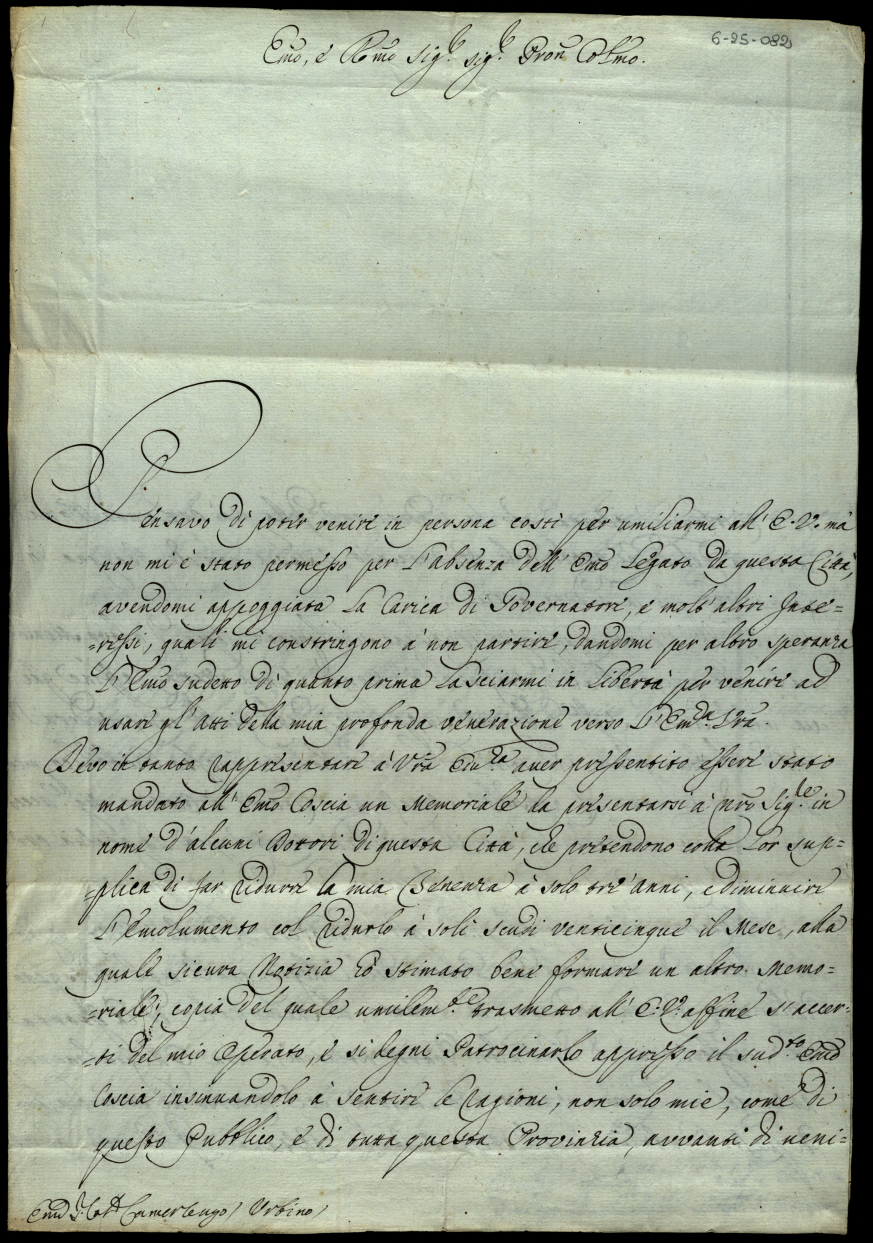 6-25-082
Emo, e Rmo Sig.r Sig.r Pron Colmo.
Pensavo di poter venire in persona costì per umiliarmi all' E. V. mà
non mi è stato permesso per l'absenza dell' Emo Legato da questa Città,
avendomi appoggiata la Carica di Governatore, e molt' altri Inte=
=ressi, quali mi constringono à non partire, dandomi per altro speranza
l'Emo sudetto di quanto prima lasciarmi in libertà per venire ad
usare gl'Atti della mia profonda venerazione verso l'Em.za Vra.
Devo in tanto rappresentare à Vra Em.za aver pressentito essere stato
mandato all' Emo Coscia un Memoriale da presentarsi à nro Sig.re in
nome d'alcuni Dottori di questa Città, che pretendono colla lor sup=
=plica di far ridurre la mia à solo tre' anni, e diminuire
l'emolumento col ridurlo à soli scudi venticinque il Mese, alla
quale sicura Notizia hò stimato bene formare un altro Memo=
=riale, copia del quale umilem.te trasmetto all' E. V. affine s'accer=
=ti del mio Operato, e si degni Patrocinarlo appresso il sud.to Emo
Coscia insinuandolo à sentire le ragioni, non solo mie, come di
questo Pubblico, e di tutta questa Provinzia, avvanti di veni=
Emo Camerlengo / Urbino /